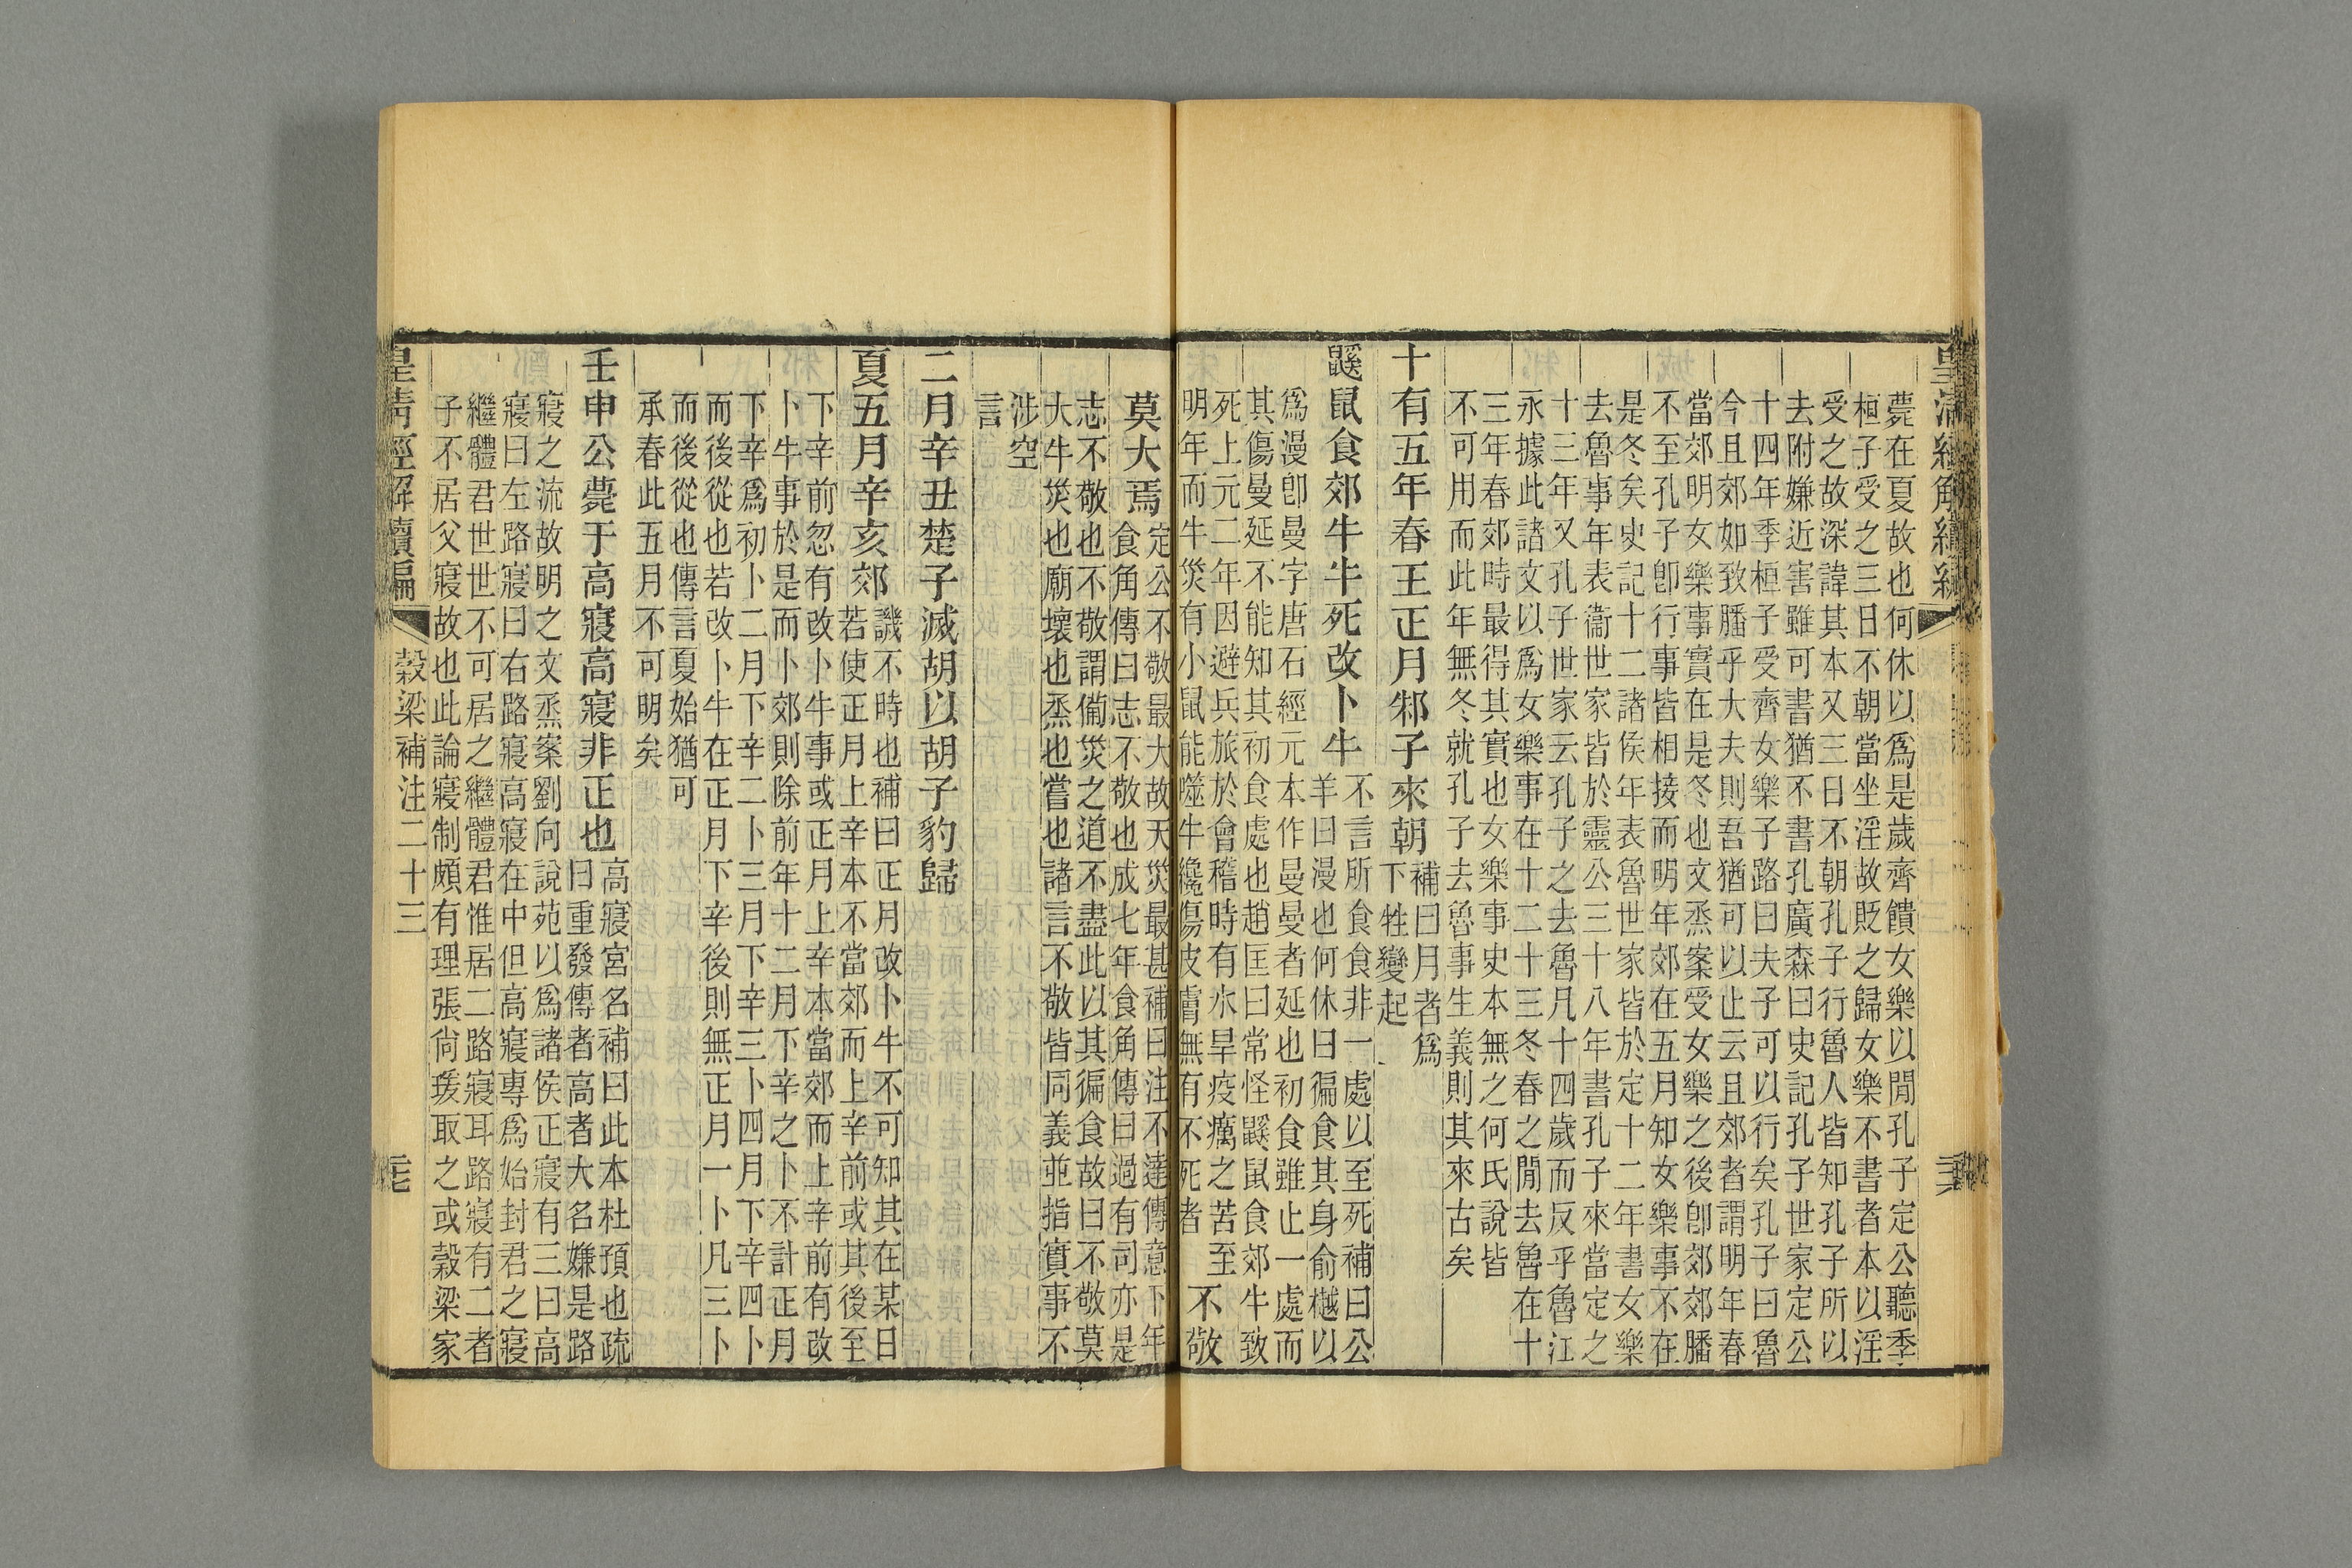 薨在夏故也何休以爲是歲齊饋女樂以間孔子定公聽季
桓子受之三日不朝當坐淫故貶之歸女樂不書者本以淫
受之故深諱其本又三日不朝孔子行魯人皆知孔子所以
去附嫌近害雖可書猶不書孔廣森曰史記孔子世家定公
十四年季桓子受齊女樂子路曰夫子可以行矣孔子曰魯
今且郊如致膰乎大夫則吾猶可以止云且郊者謂明年春
當郊明女樂事實在是冬也文烝案受女樂之後卽郊郊膰
不至孔子卽行事皆相接而明年郊在五月知女樂事不在
是冬矣史記十二諸侯年表魯世家皆於定十二年書女樂
去魯事年表衞世家皆於靈公三十八年書孔子來當定之
十三年又孔子世家云孔子之去魯凡十四歲而反乎魯江
永據此諸文以爲女樂事在十二十三冬春之閒去魯在十
三年春郊時最得其實也女樂事史本無之何氏說皆
不可用而此年無冬就孔子去魯事生義則其來古矣
十有五年春王正月邾子來朝補曰月者爲
下牲變起
鼷鼠食郊牛牛死改卜牛不言所食食非一處以至死補曰公
羊曰漫也何休曰徧食其身俞樾以
爲漫卽曼字唐石經元本作曼曼者延也初食雖止一處而
其傷曼延不能知其初食處也趙匡曰常怪鼷鼠食郊牛致
死上元二年因避兵旅於會稽時有水旱疫癘之苦至
明年而牛災有小鼠能噬牛纔傷皮膚無有不死者不敬
莫大焉定公不敬最大故天災最甚補曰注不達傳意下年
食角傳曰志不敬也成七年食角傳曰過有司亦是
志不敬也不敬謂備災之道不盡此以其徧食故曰不敬莫
大牛災也廟壞也烝也嘗也諸言不敬皆同義並指實事不
涉空
言
二月辛丑楚子滅胡以胡子豹歸
夏五月辛亥郊譏不時也補曰正月改卜牛不可知其在某日
若使正月上辛本不當郊而上辛前或其後至
下辛前忽有改卜牛事或正月上辛本當郊而上辛前有改
卜牛事於是而卜郊則除前年十二月下辛之卜不計正月
下辛爲初卜二月下辛二卜三月下辛三卜四月下辛四卜
而後從也若改卜牛在正月下辛後則無正月一卜凡三卜
而後從也傳言夏始猶可
承春此五月不可明矣
壬申公薨于高寢高寢非正也高寢宮名補曰此本杜預也疏
曰重發傳者高者大名嫌是路
寢之流故明之文烝案劉向說苑以爲諸侯正寢有三曰高
寢曰左路寢曰右路寢高寢在中但高寢專爲始封君之寢
繼體君世世不可居之繼體君惟居二路寢耳路寢有二者
子不居父寢故也此論寢制頗有理張尙瑗取之或穀梁家
皇清經解續編 穀梁補注二十三